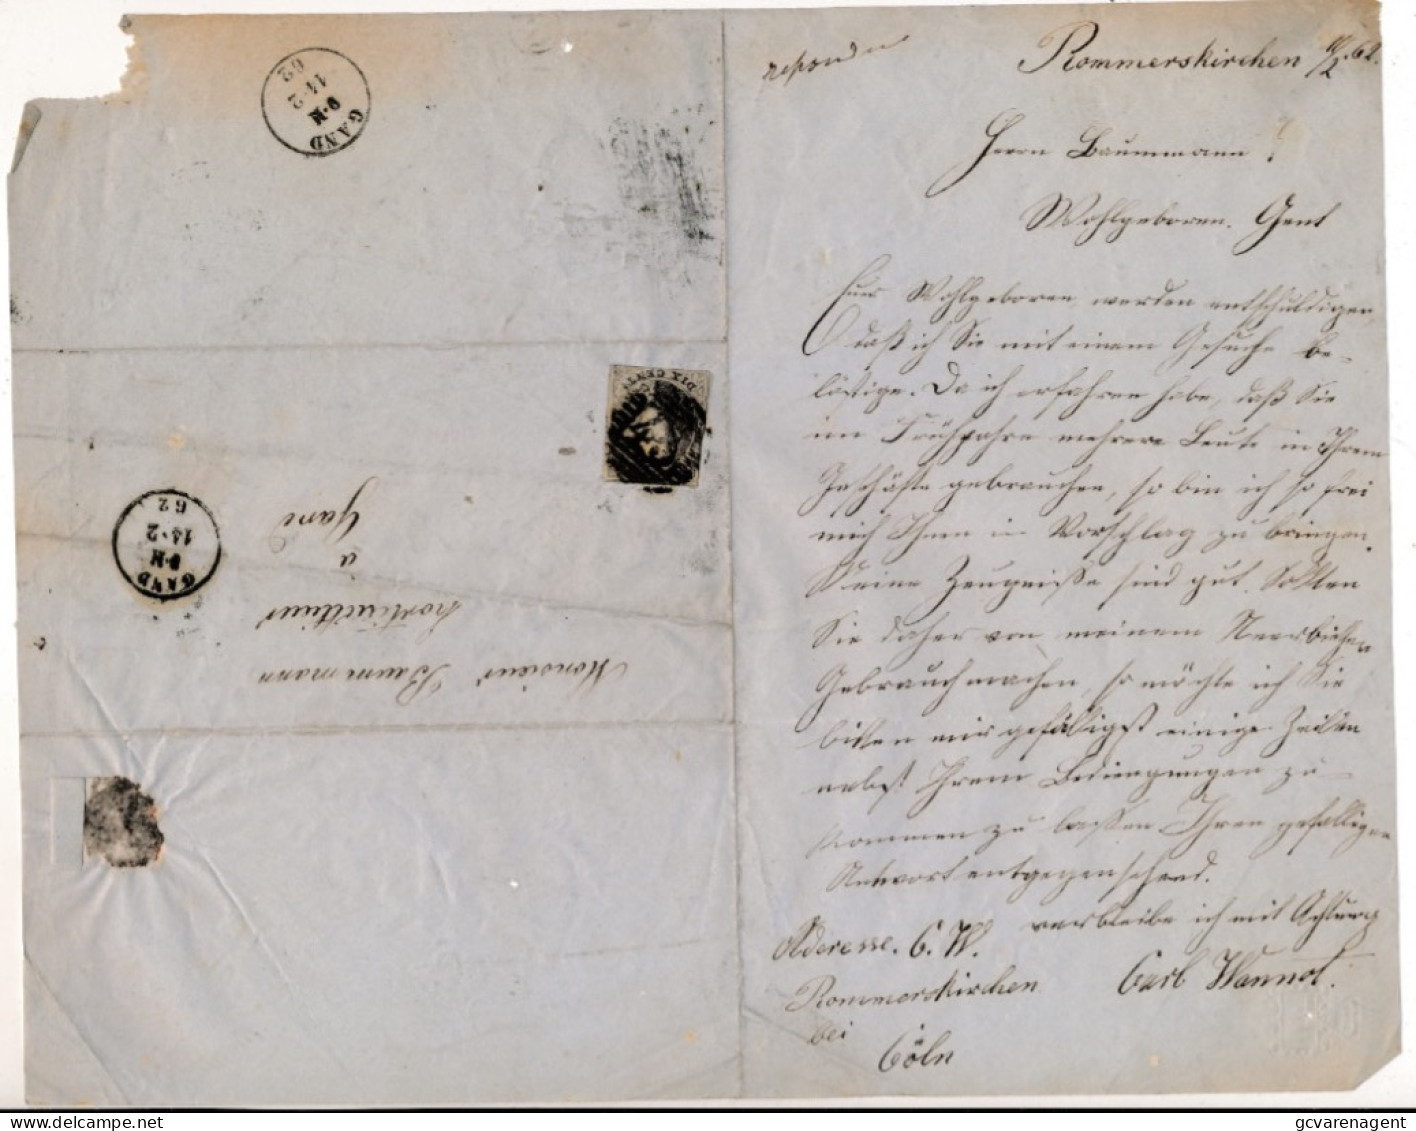 repondu
Rommerskirchen 10/2.62.
Herrn Baummann
Wohlgeboren. Gent
Euer Wohlgeboren, werden entschuldigen,
daß ich Sie mit einem Gesuche be-
lästige. Da ich erfahren habe, daß Sie
im Frühjahre mehrere Leute in Ihrem
Geschäfte gebrauchen, so bin ich so frei
mich Ihnen in Vorschlag zu bringen.
Meine Zeugnisse sind gut. Sollten
Sie daher von meinem Anerbieten
Gebrauch machen, so möchte ich Sie
bitten mir gefälligst einige Zeilen
nebst Ihrem Bedingungen zu
kommen zu lassen Ihren gefälligen
Antwort entgegensehend.
verbleibe ich mit Achtung
Carl Wannot.
Aderesse. C. W.
Rommerskirchen
bei
Cöln
GAND
9-M
14-2
62
DIX CENT
Monsieur Baummann
horticulteur
à
Gand
GAND
9-M
14-2
62
gcvarenagent